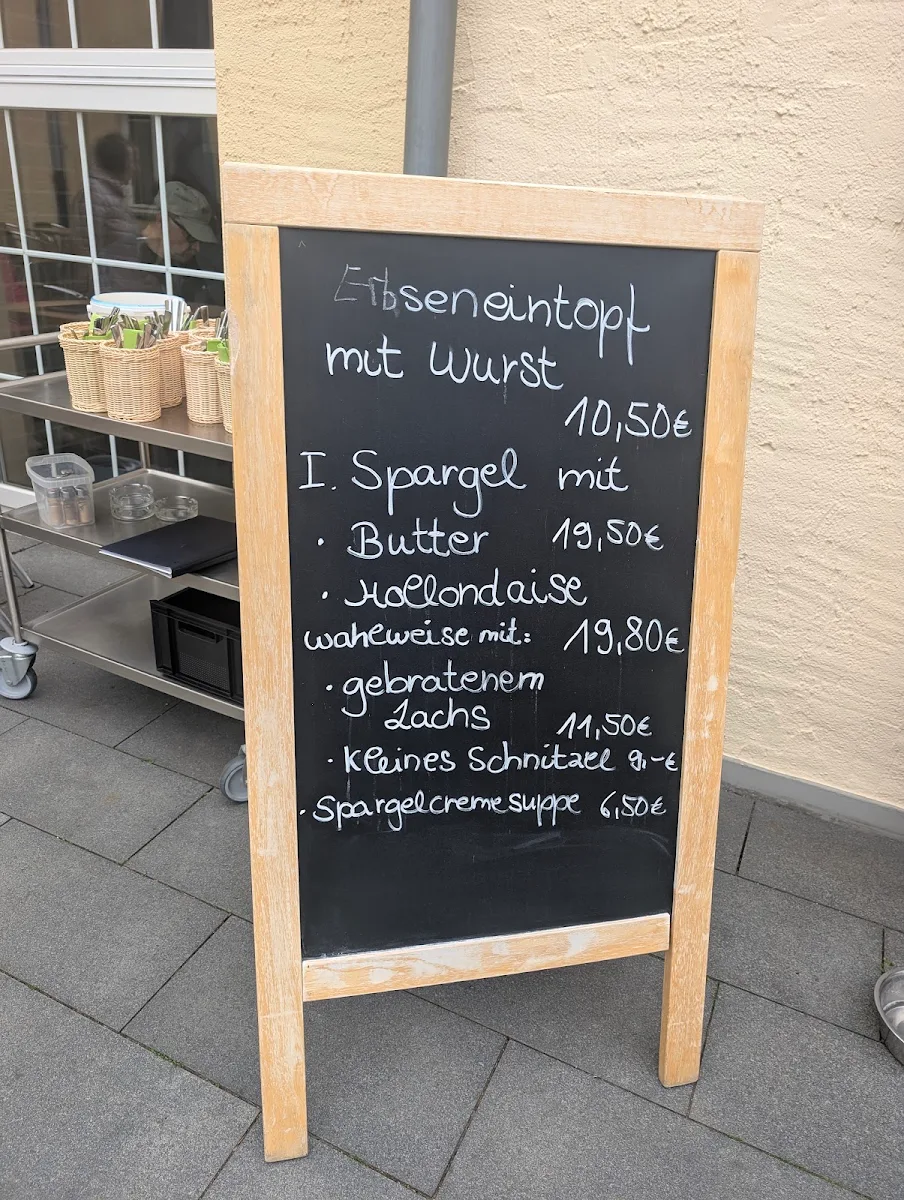 Erbseneintopf
mit Wurst
10,50€
I. Spargel mit
· Butter 19,50€
· Hollondaise
wahlweise mit: 19,80€
· gebratenem
Lachs 11,50€
· kleines Schnitzel 9,-€
· Spargelcremesuppe 6,50€